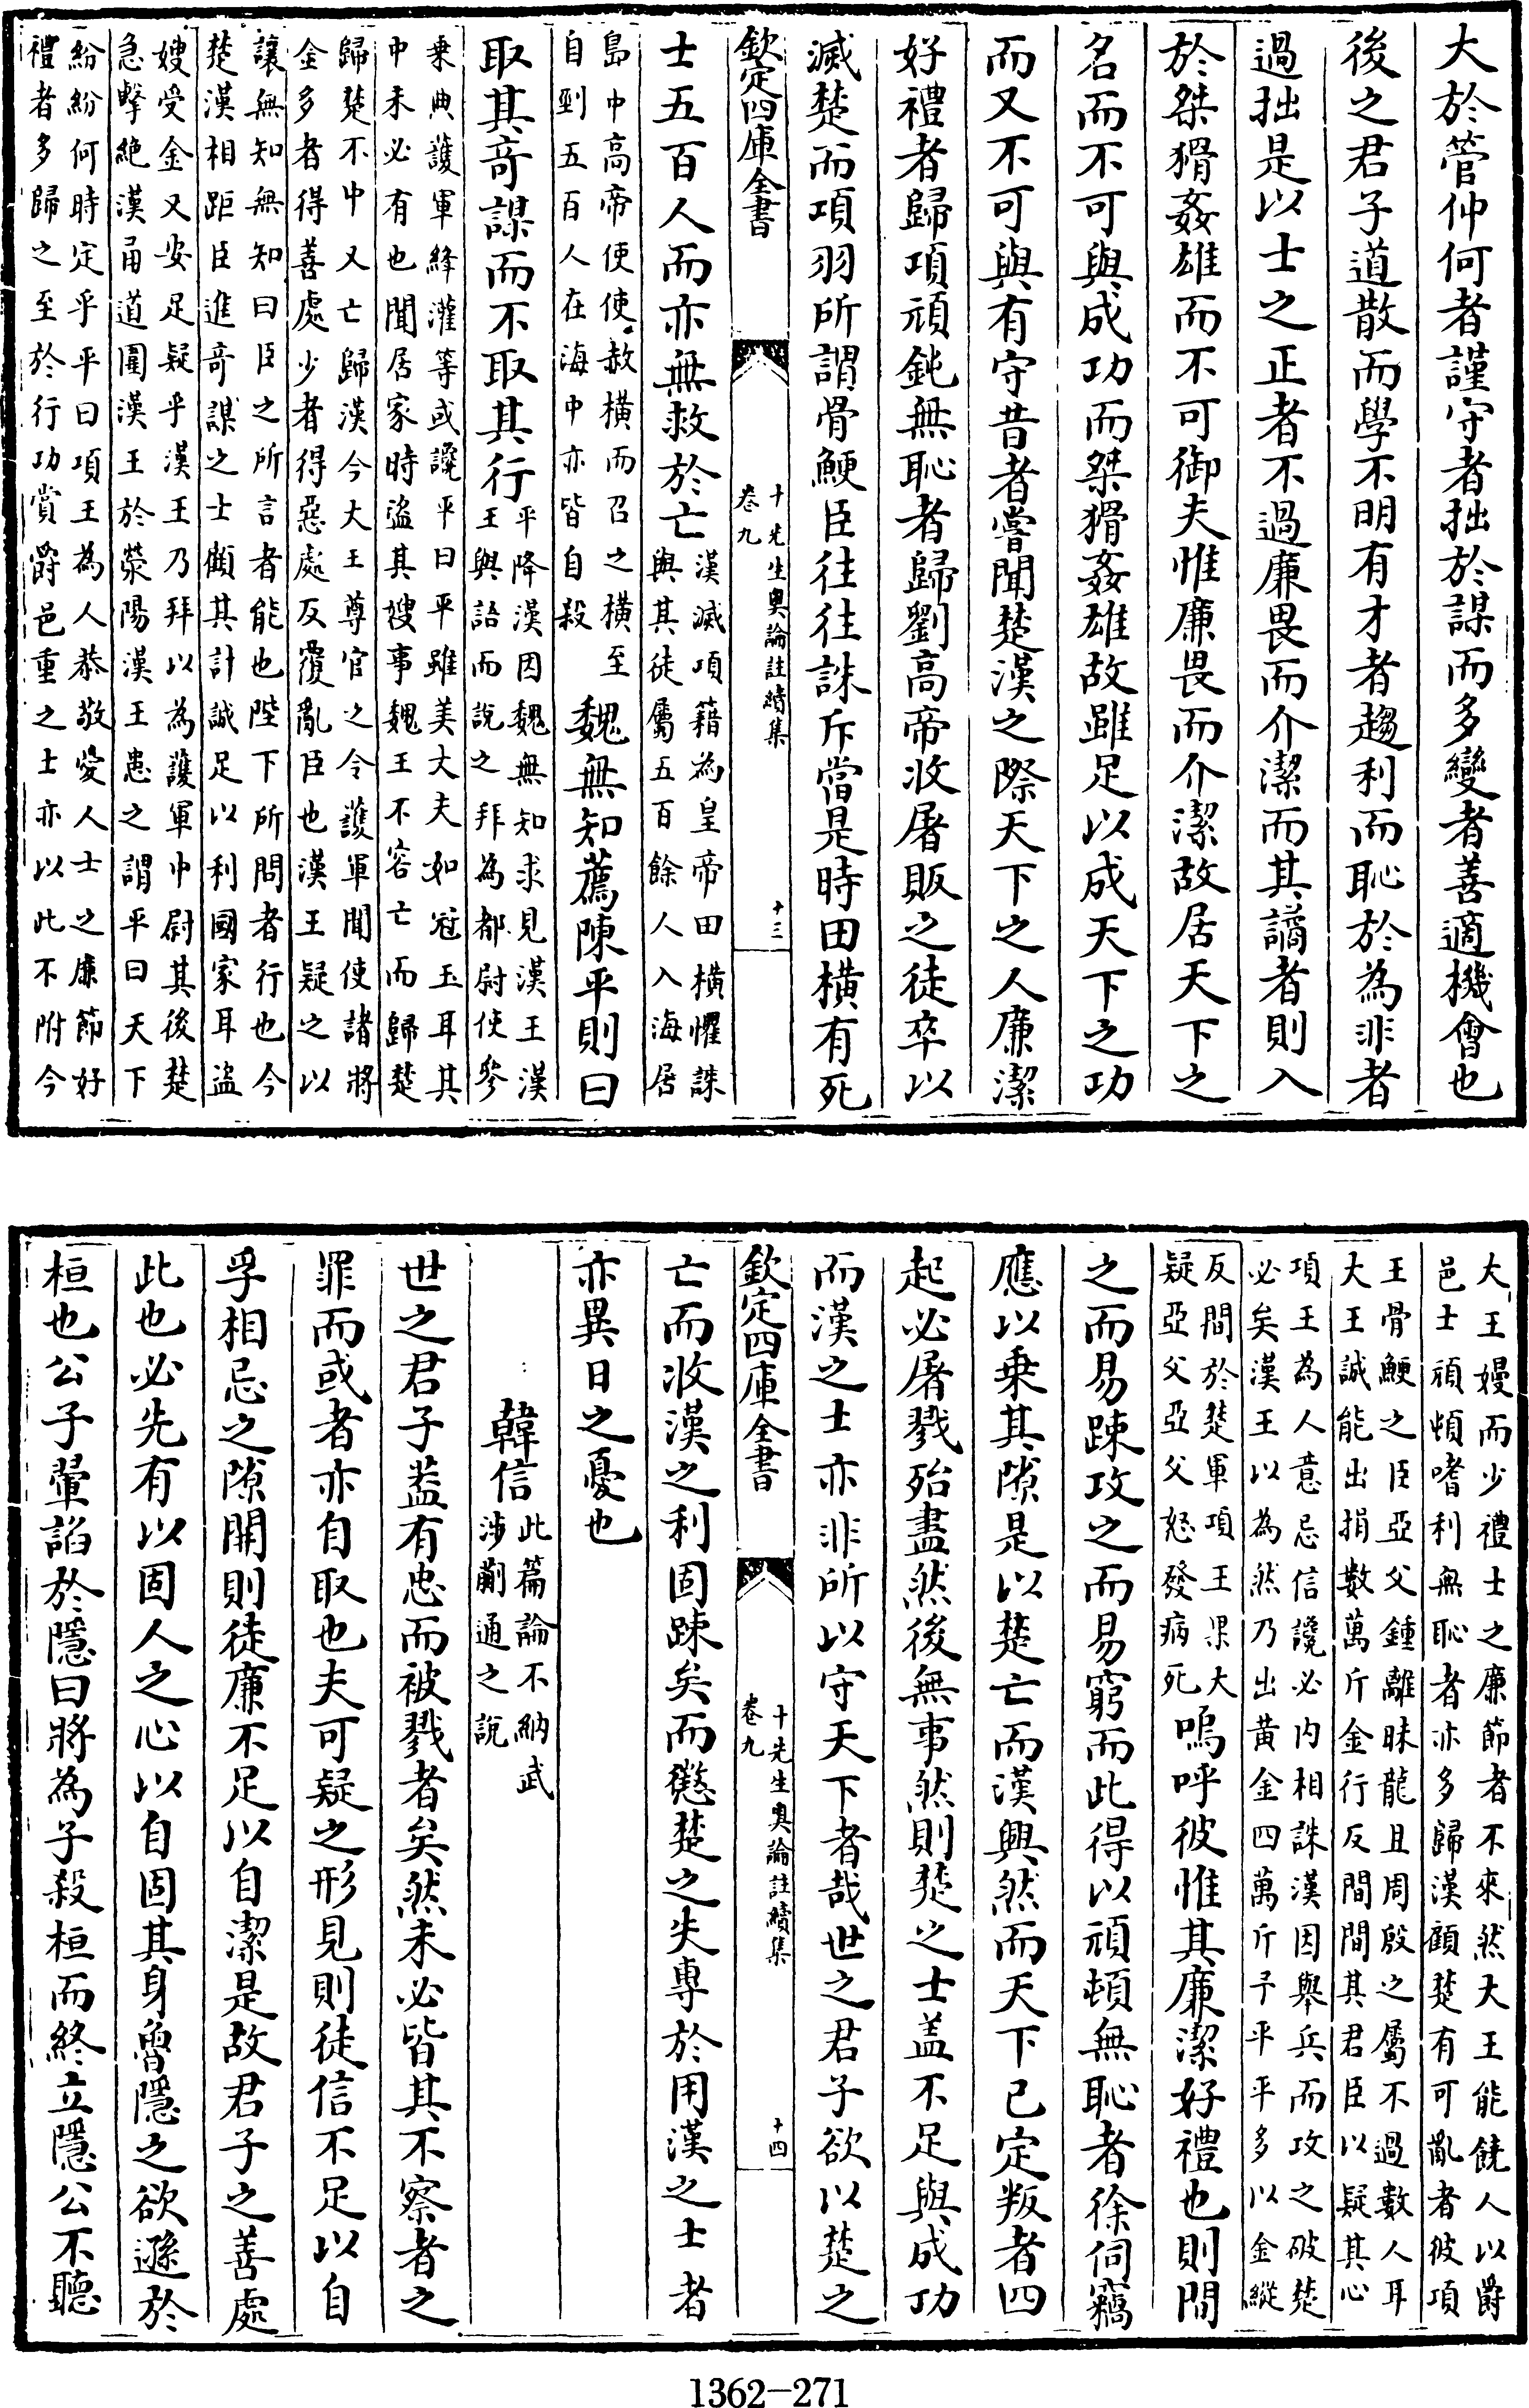 大於管仲何者謹守者拙於謀而多變者善適機會也
後之君子道散而學不明有才者趨利而恥於為非者
過拙是以士之正者不過廉畏而介潔而其譎者則入
於桀猾姦雄而不可御夫惟廉畏而介潔故居天下之
名而不可與成功而桀猾姦雄故雖足以成天下之功
而又不可與有守昔者嘗聞楚漢之際天下之人廉潔
好禮者歸項頑鈍無恥者歸劉高帝收屠販之徒卒以
滅楚而項羽所謂骨鯁臣往往誅斥當是時田橫有死
欽定四庫全書
十先生奧論註續集
卷九
十三
士五百人而亦無救於亡
漢滅項籍為皇帝田橫懼誅
與其徒屬五百餘人入海居
島中高帝使使赦橫而召之橫至
自剄五百人在海中亦皆自殺
魏無知薦陳平則曰
取其奇謀而不取其行
平降漢因魏無知求見漢王漢
王與語而說之拜為都尉使參
乗典護軍絳灌等或讒平曰平雖美丈夫如冠玉耳其
中未必有也聞居家時盜其嫂事魏王不容亡而歸楚
歸楚不中又亡歸漢今大王尊官之令護軍聞使諸將
金多者得善處少者得惡處反覆亂臣也漢王疑之以
讓無知無知曰臣之所言者能也陛下所問者行也今
楚漢相距臣進奇謀之士顧其計誠足以利國家耳盜
嫂受金又安足疑乎漢王乃拜以為護軍中尉其後楚
急擊絶漢甬道圍漢王於滎陽漢王患之謂平曰天下
紛紛何時定乎平曰項王為人恭敬愛人士之廉節好
禮者多歸之至於行功賞爵邑重之士亦以此不附今
大王嫚而少禮士之廉節者不來然大王能饒人以爵
邑士頑頓嗜利無恥者亦多歸漢顧楚有可亂者彼項
王骨鯁之臣亞父鍾離昧龍且周殷之屬不過數人耳
大王誠能出捐數萬斤金行反間間其君臣以疑其心
項王為人意忌信讒必内相誅漢因舉兵而攻之破楚
必矣漢王以為然乃出黄金四萬斤予平平多以金縱
反間於楚軍項王果大
疑亞父亞父怒發病死
嗚呼彼惟其廉潔好禮也則間
之而易踈攻之而易窮而此得以頑頓無恥者徐伺竊
應以乗其隙是以楚亡而漢興然而天下已定叛者四
起必屠戮殆盡然後無事然則楚之士盖不足與成功
而漢之士亦非所以守天下者哉世之君子欲以楚之
欽定四庫全書
十先生奧論註續集
卷九
十四
亡而收漢之利固踈矣而懲楚之失專於用漢之士者
亦異日之憂也
韓信
此篇論不納武
涉蒯通之說
世之君子葢有忠而被戮者矣然未必皆其不察者之
罪而或者亦自取也夫可疑之形見則徒信不足以自
孚相忌之隙開則徒廉不足以自潔是故君子之善處
此也必先有以固人之心以自固其身魯隱之欲遜於
桓也公子翬謟於隱曰將為子殺桓而終立隱公不聽
1362—271